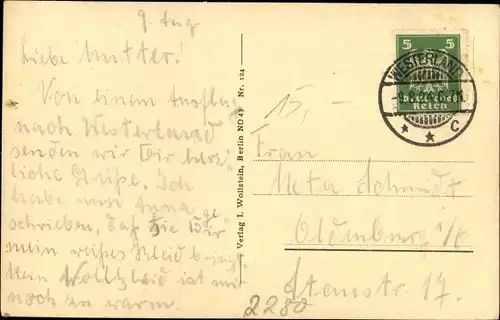 9. Aug
Liebe Mutter.
Von einem Ausflug
nach Westerland
senden wir Dir herz-
liche Grüße. Ich
habe nun Anna ge-
schrieben, daß sie Dir
mein weißes Kleid bringt.
Kein Wollkleid ist mir
noch an warm.
Verlag I. Wollstein, Berlin NO 43 Nr. 124
15,-
5 5
Deutsches
Reich
WESTERLAND
* * C
Frau
Meta Schmidt
Oldenburg i/O
Steinstr. 17.
2280